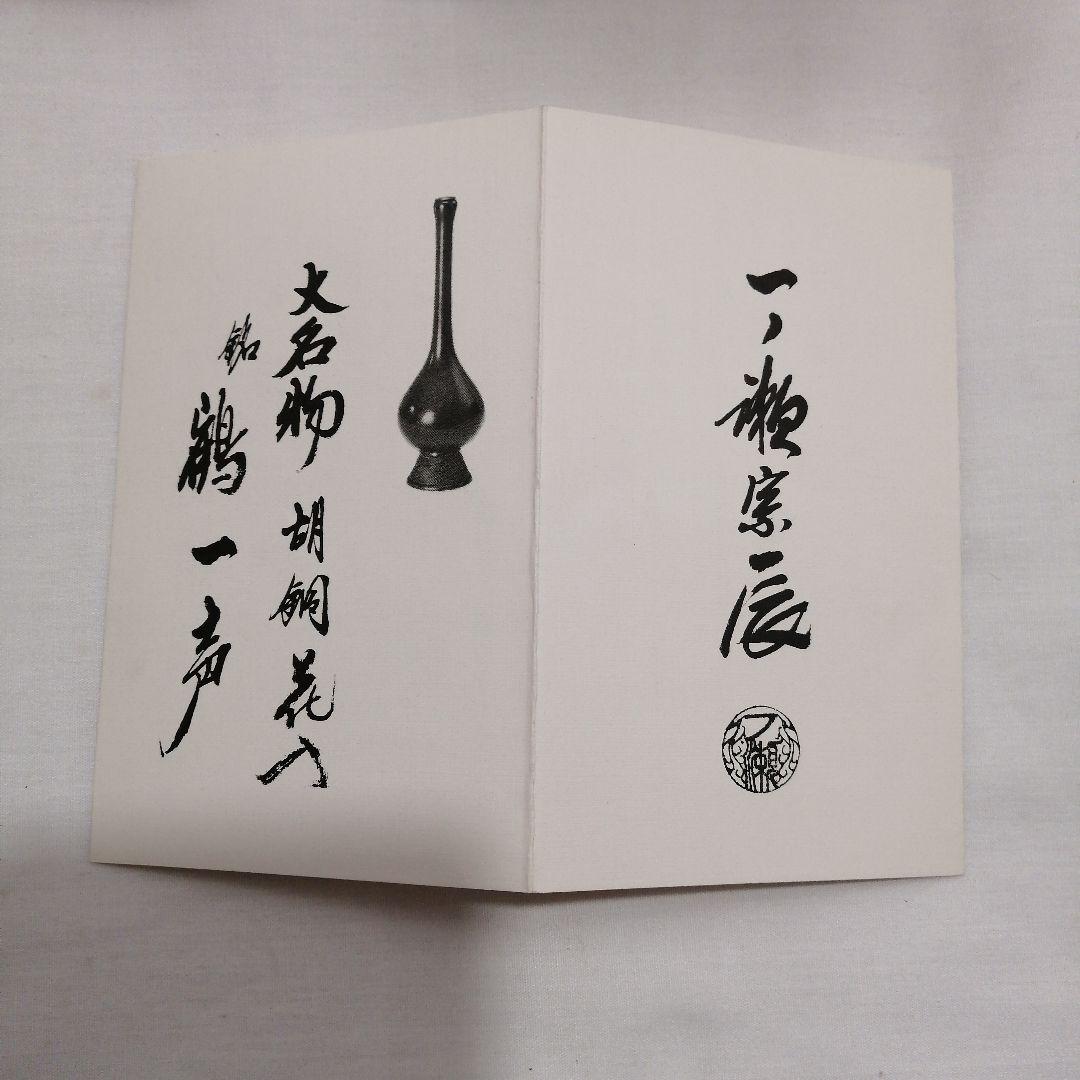 一ノ瀬宗辰
一ノ瀬
大名物 胡銅花入
銘 鶴一声